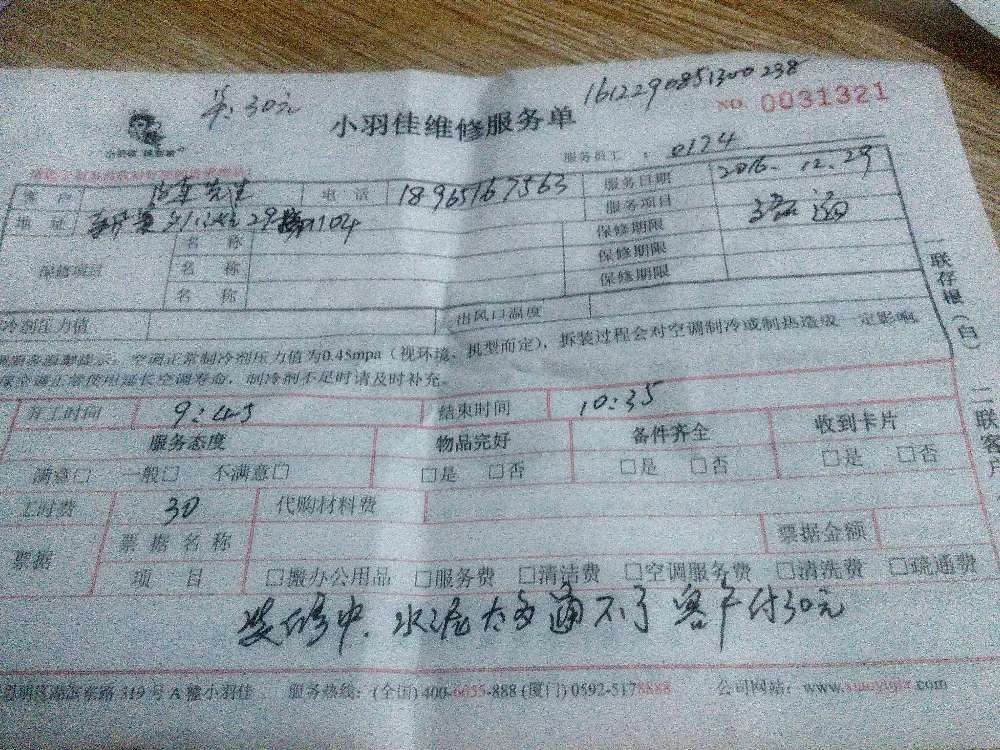 30元
1612290851300238
小羽佳维修服务单
NO. 0031321
服务员工：0174
客户 先生 电话 18965167563 服务日期 2016.12.29
地址 29 1104 服务项目
保修项目 名称 保修期限
名称 保修期限
名称 保修期限
冷剂压力值 出风口温度
空调正常制冷剂压力值为0.45mpa（视环境、机型而定），拆装过程会对空调制冷或制热造成一定影响.
空调正常使用延长空调寿命，制冷剂不足时请及时补充。
开工时间 9:45 结束时间 10:35
服务态度 物品完好 备件齐全 收到卡片
满意□ 一般□ 不满意□ □是 □否 □是 □否 □是 □否
工时费 30 代购材料费
票据 票据名称 票据金额
项目 □搬办公用品 □服务费 □清洁费 □空调服务费 □清洗费 □疏通费
装修中.水泥太多通不了 客户付30元
东路319号A幢小羽佳 服务热线：(全国) 400-6655-888 (厦门) 0592-5178888 公司网站：www.xiaoyujia.com
一联存根（白） 二联客户